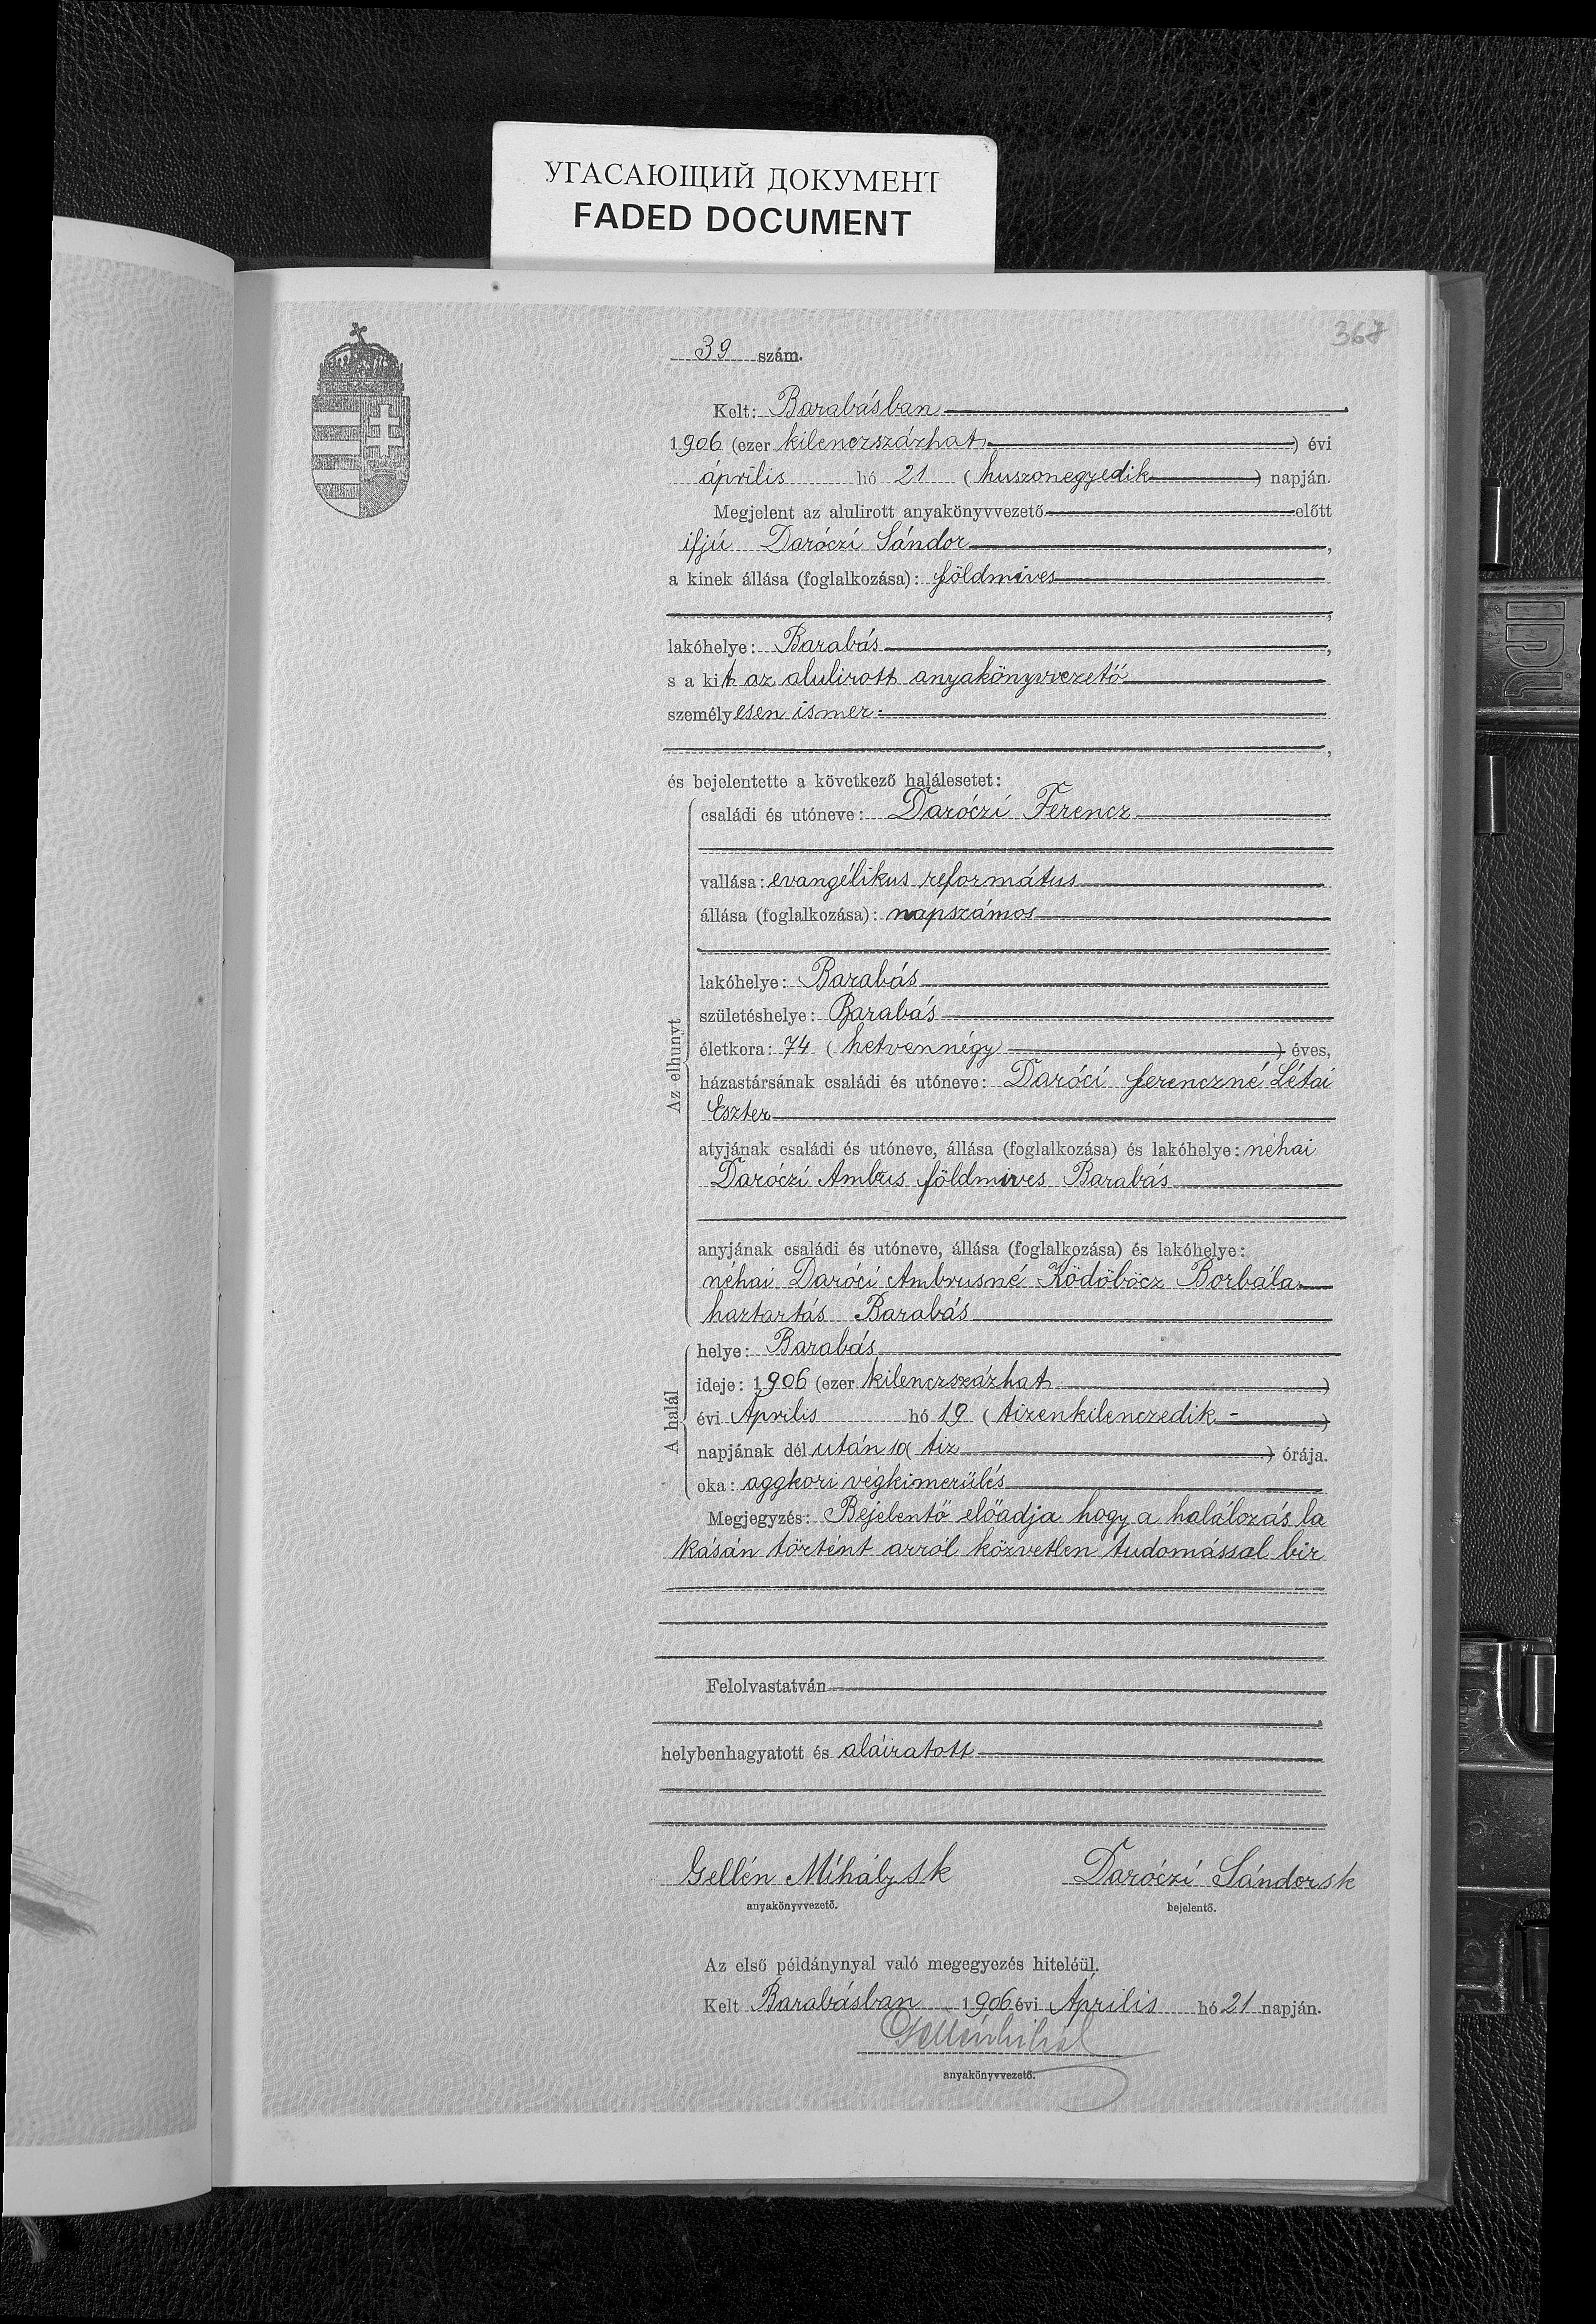 УГАСАЮЩИЙ ДОКУМЕНТ
FADED DOCUMENT
367
39 szám.
Kelt: Barabásban
1906 (ezer kilenczszázhat) évi
április hó 21 (huszonegyedik) napján.
Megjelent az alulirott anyakönyvvezető előtt
ifjú Daróczi Sándor,
a kinek állása (foglalkozása): földmives
,
lakóhelye: Barabás,
s a kit az alulirott anyakönyvvezető
személyesen ismer.
,
és bejelentette a következő halálesetet:
Az elhunyt
családi és utóneve: Daróczi Ferencz
vallása: evangélikus református
állása (foglalkozása): napszámos
lakóhelye: Barabás
születéshelye: Barabás
életkora: 74 (hetvennégy) éves,
házastársának családi és utóneve: Daróci ferenczné Létai
Eszter
atyjának családi és utóneve, állása (foglalkozása) és lakóhelye: néhai
Daróczi Ambrus földmives Barabás
anyjának családi és utóneve, állása (foglalkozása) és lakóhelye:
néhai Daróci Ambrusné Ködöböcz Borbála
haztartás Barabás
A halál
helye: Barabás
ideje: 1906 (ezer kilenczszázhat)
évi Április hó 19 (tizenkilenczedik -)
napjának dél után 10 (tiz) órája.
oka: aggkori végkimerülés
Megjegyzés: Bejelentő előadja hogy a halálozás la
kásán történt arról közvetlen tudomással bir
Felolvastatván
,
helybenhagyatott és aláiratott
Gellén Mihály sk Daróczi Sándor sk
anyakönyvvezető. bejelentő.
Az első példánynyal való megegyezés hiteléül.
Kelt Barabásban 1906 évi Április hó 21 napján.
Gellén Mihál
anyakönyvvezető.